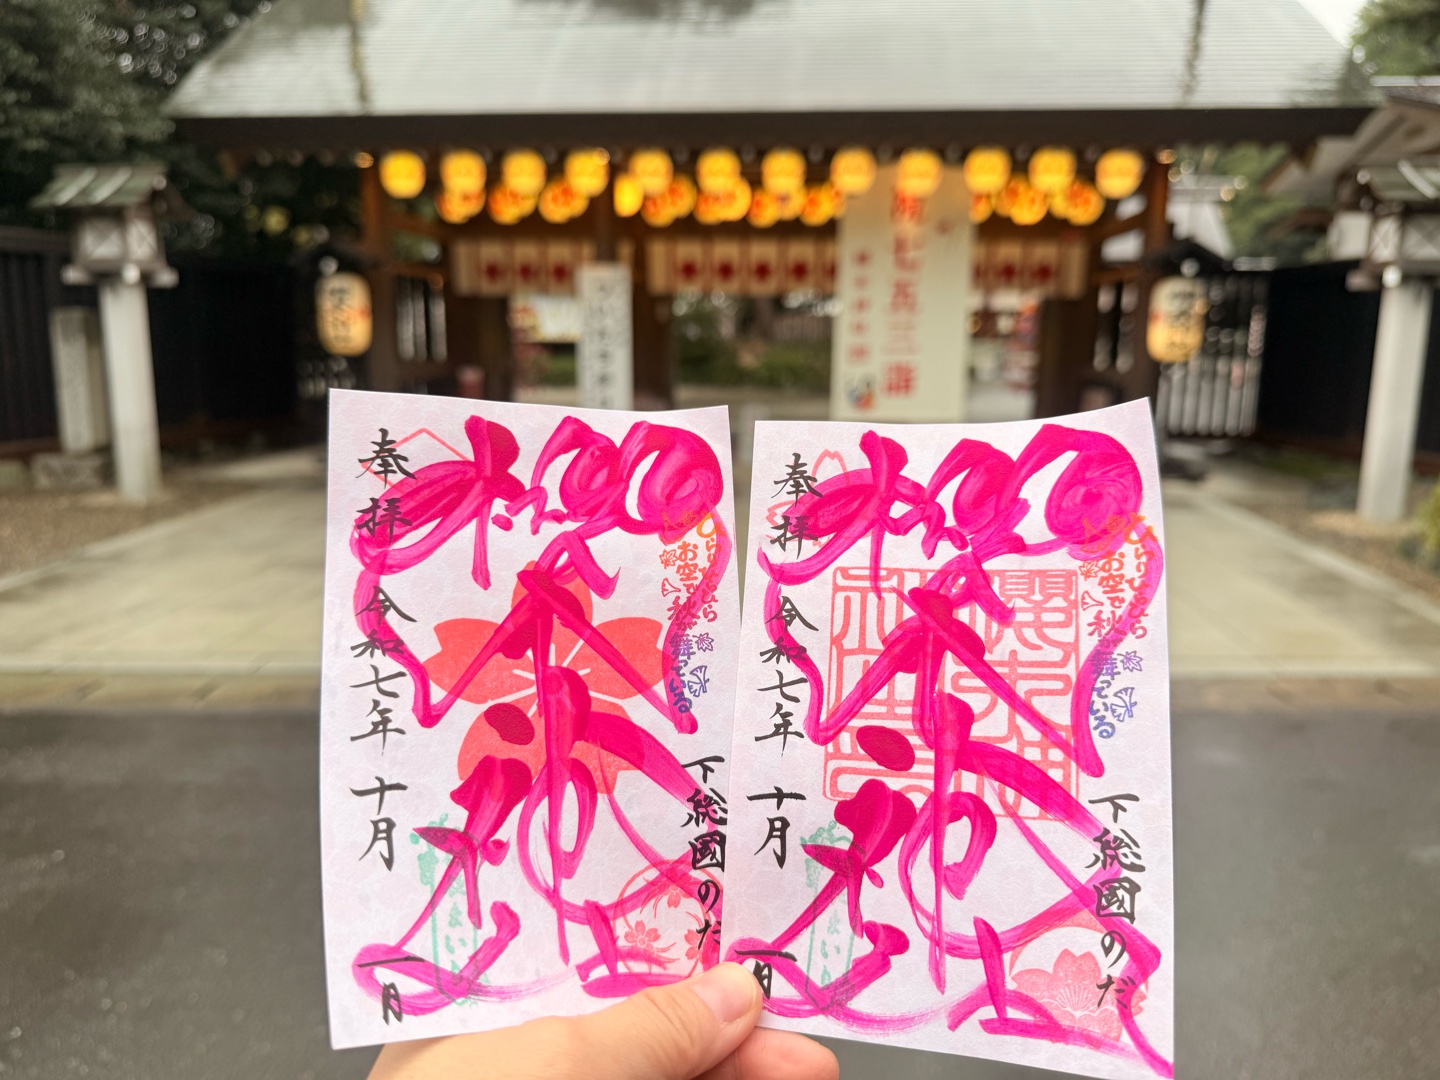 七五三詣
ひらりひらら
お空で
秋が舞っている
下総國のだ
櫻木神社
奉拝
令和七年
十月
一日
まいり
ひらりひらら
お空で
秋が舞っている
下総國のだ
櫻木神社
奉拝
令和七年
十月
一日
まいり